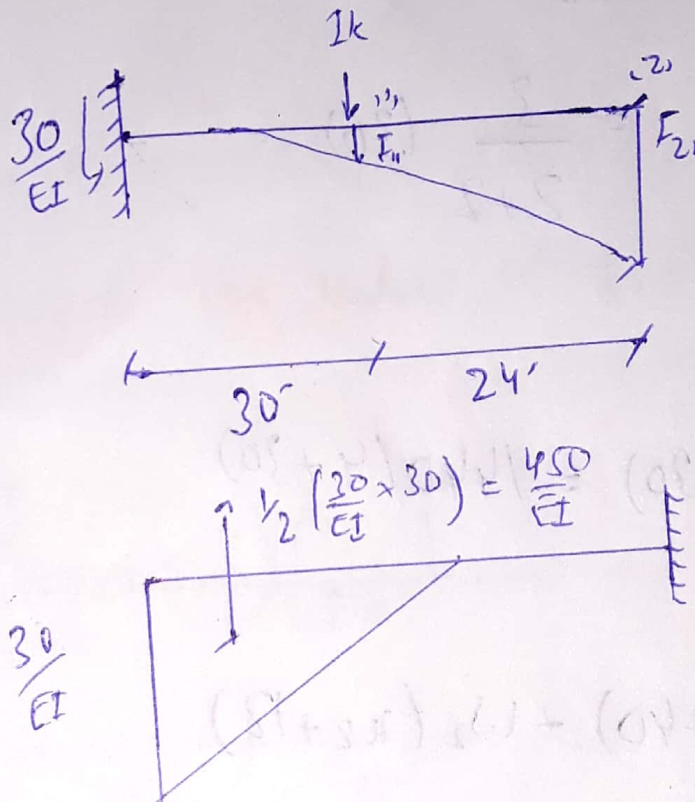 1k
(1)
(2)
30/EI
F₁₁
F₂₁
30'
24'
½ (30/EI × 30) = 450/EI
30/EI